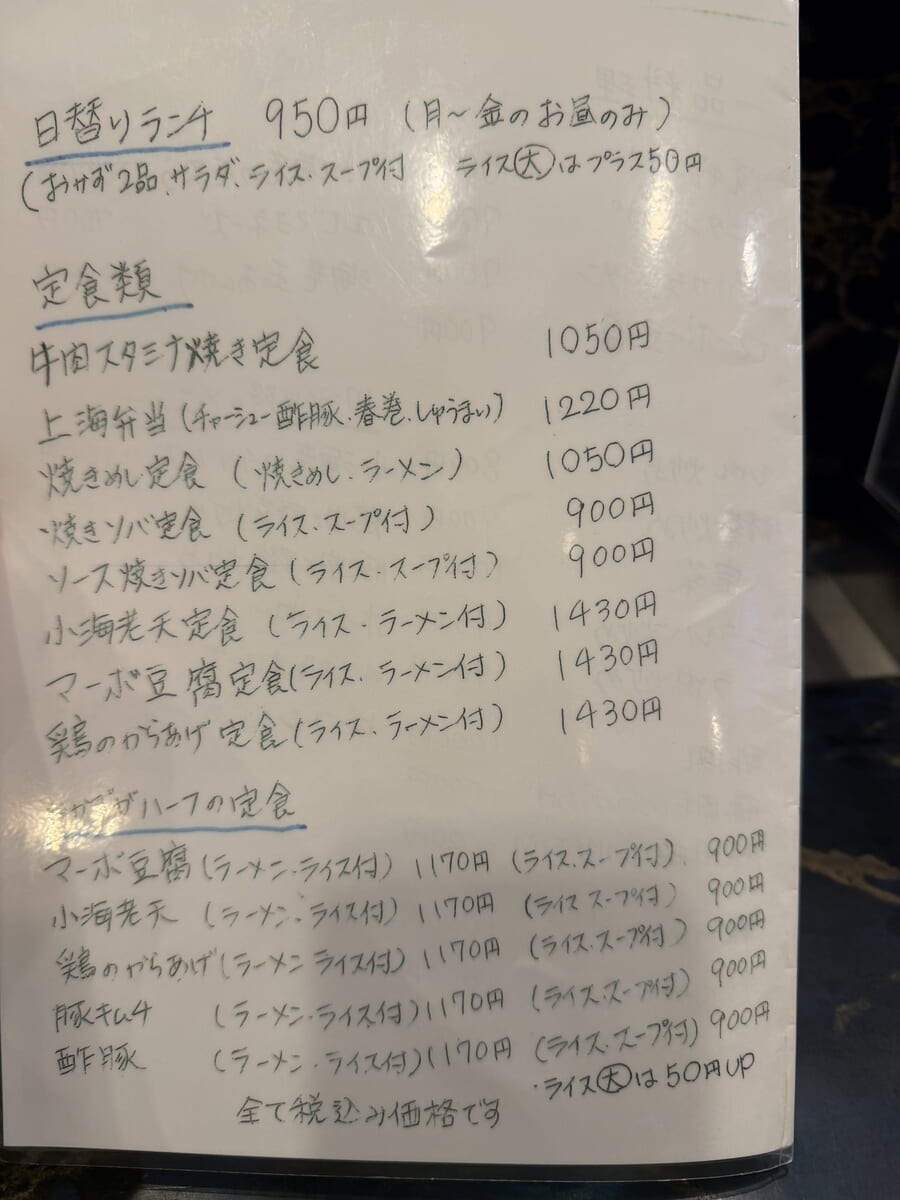 日替りランチ 950円 (月～金のお昼のみ)
(おかず2品、サラダ、ライス・スープ付 ライス大はプラス50円
定食類
牛肉スタミナ焼き定食 1050円
上海弁当(チャーシュー酢豚・春巻・しゅうまい) 1220円
焼きめし定食 (焼きめし、ラーメン) 1050円
焼きソバ定食 (ライス・スープ付) 900円
ソース焼きソバ定食(ライス・スープ付) 900円
小海老天定食 (ライス・ラーメン付) 1430円
マーボ豆腐定食(ライス、ラーメン付) 1430円
鶏のからあげ定食(ライス、ラーメン付) 1430円
おかずがハーフの定食
マーボ豆腐(ラーメン・ライス付) 1170円 (ライス・スープ付) 900円
小海老天 (ラーメン・ライス付) 1170円 (ライス スープ付) 900円
鶏のからあげ(ラーメン ライス付) 1170円 (ライス・スープ付) 900円
豚キムチ (ラーメン・ライス付) 1170円 (ライス・スープ付) 900円
酢豚 (ラーメン・ライス付) 1170円 (ライス・スープ付) 900円
・ライス大は50円UP
全て税込み価格です